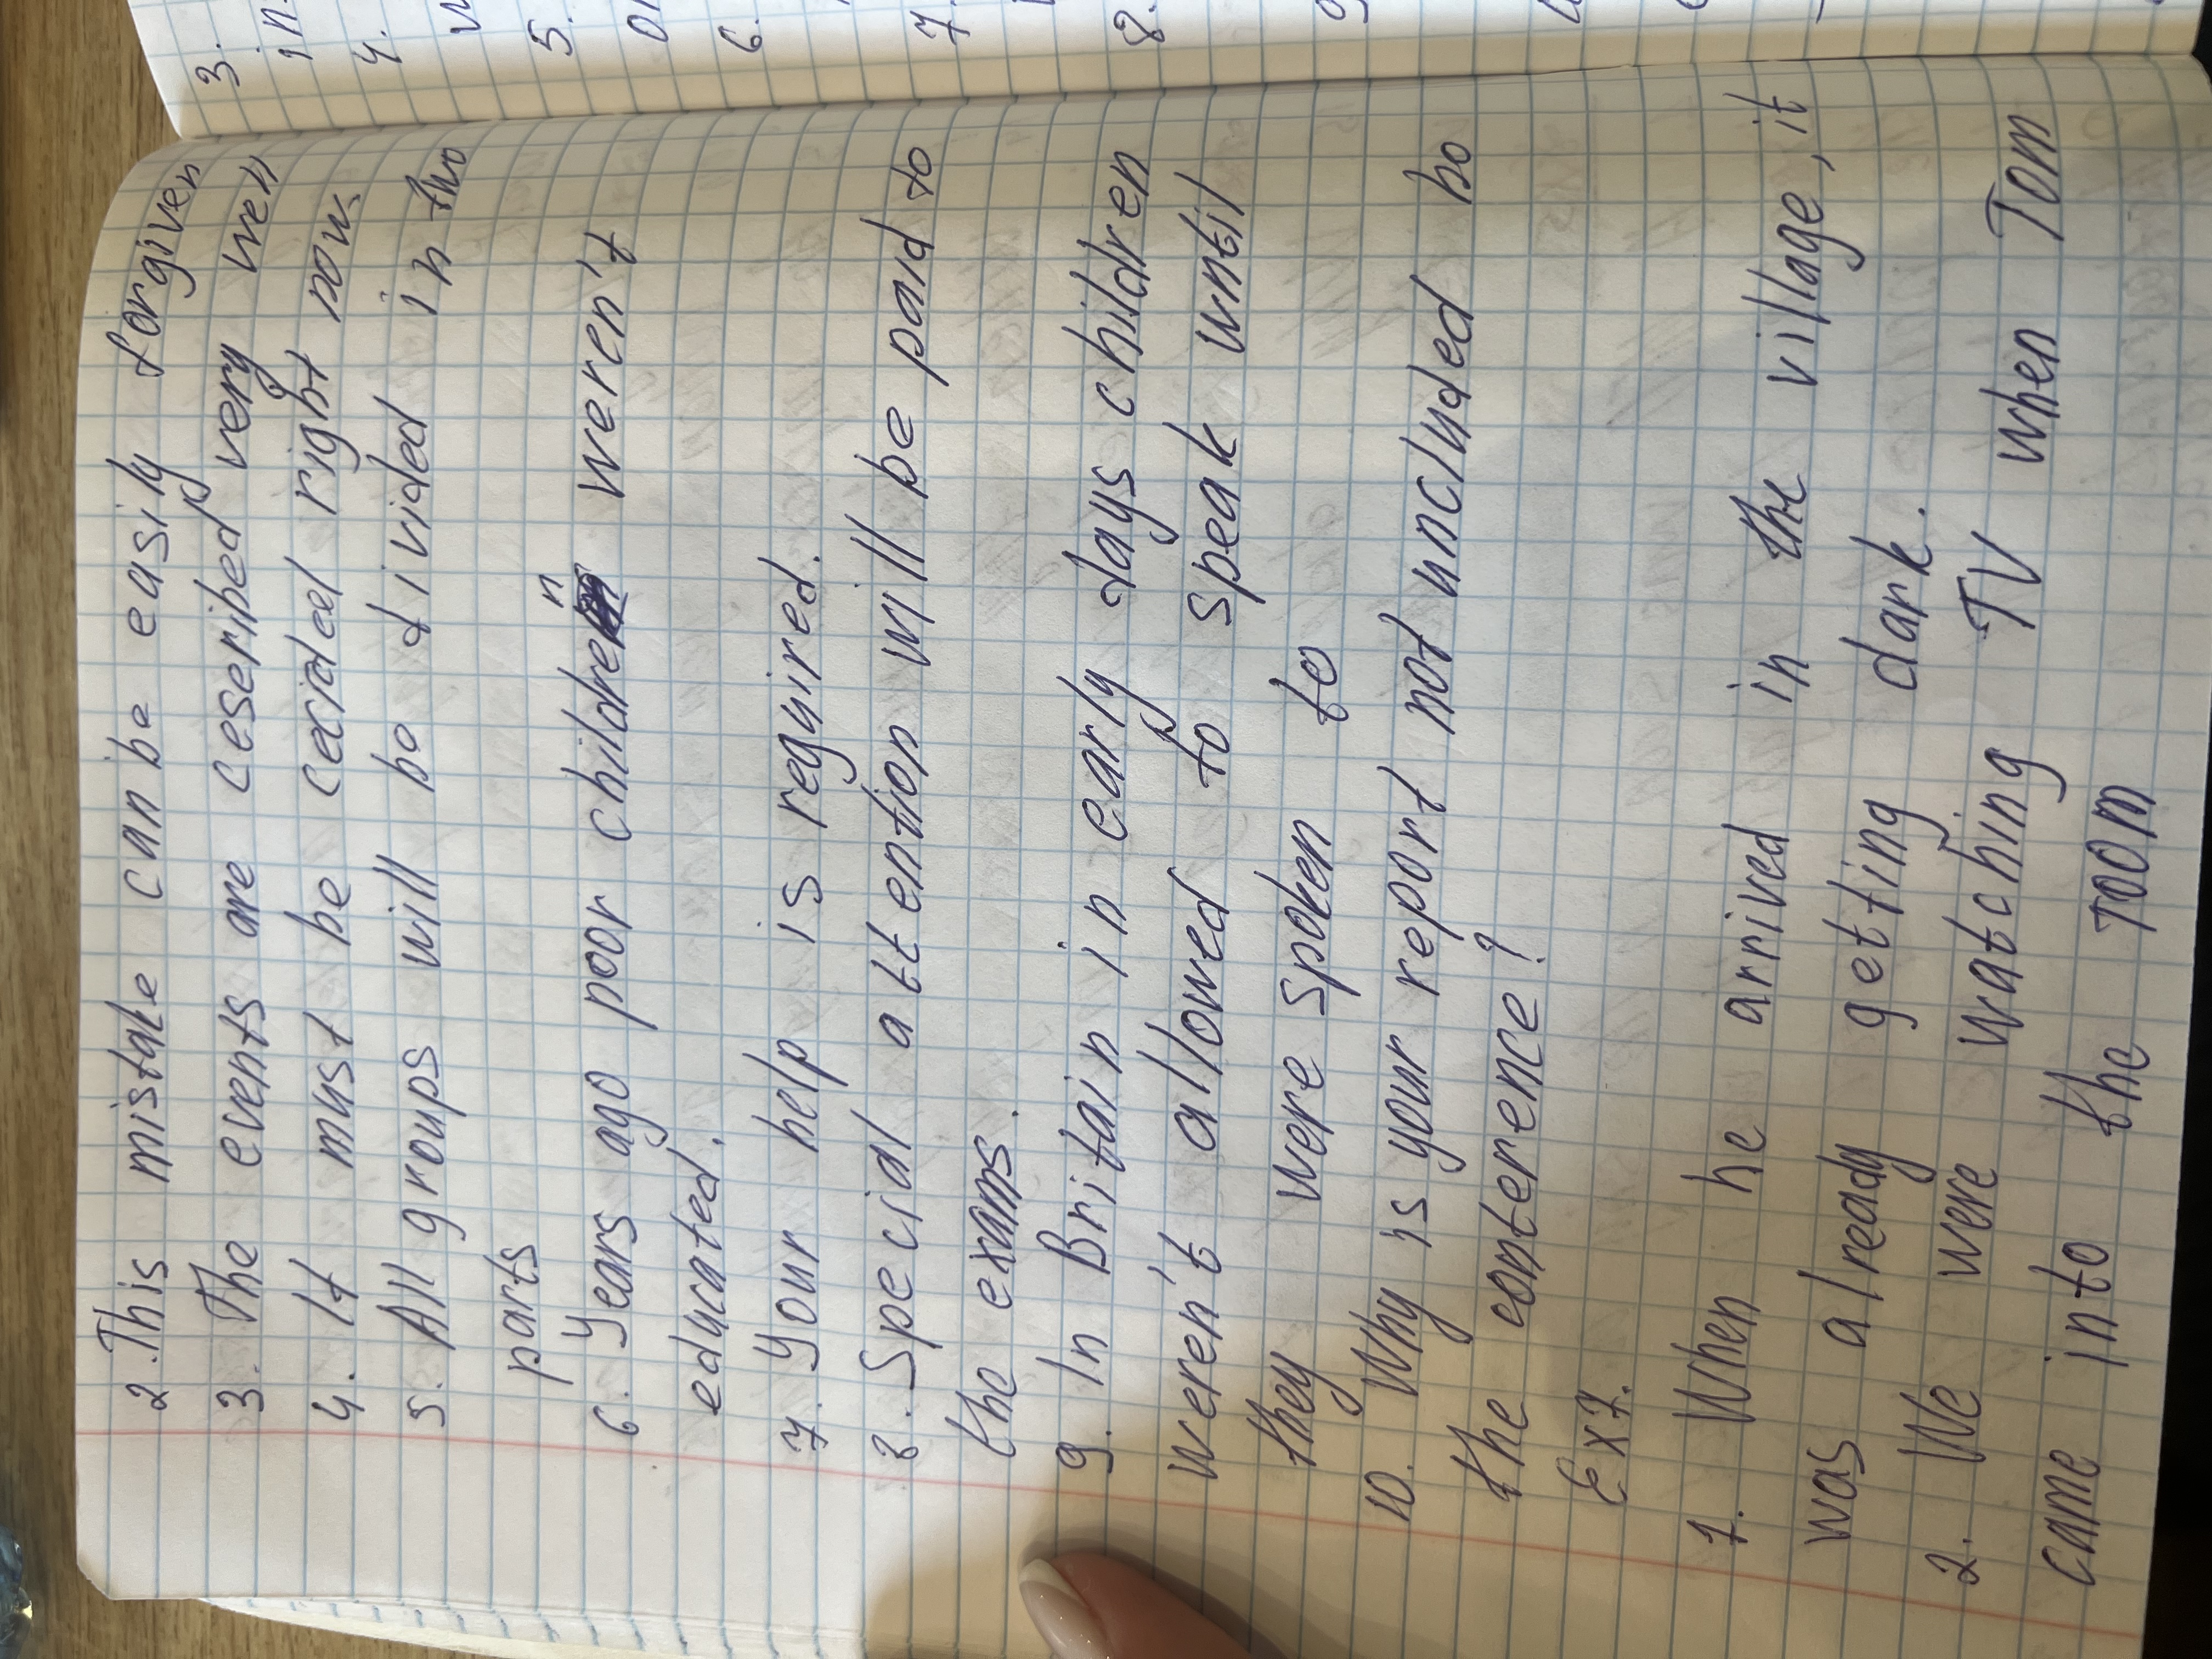 2. This mistake can be easily forgiven
3. The events are ceseribed very well
4. It must be cecidel right now.
5. All groups will be divided in two
parts
6. Years ago poor children weren't
educated.
7. Your help is required.
8. Special attention will be paid to
the exams.
9. In Britain in early days children
weren't allowed to speak until
they were spoken to
10. Why is your report not uncluded bo
the conference?
Ex 7.
1. When he arrived in the village, it
was already getting dark.
2. We were watching TV when Tom
came into the room
3.
in
4.
5.
6.
7.
8.